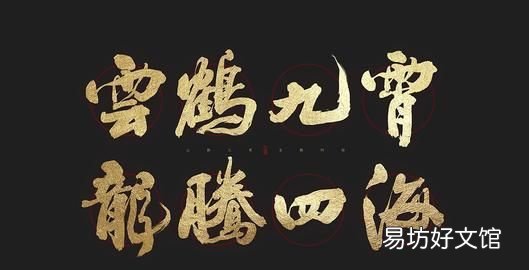 雲鶴九霄
龍騰四海
易坊好文馆